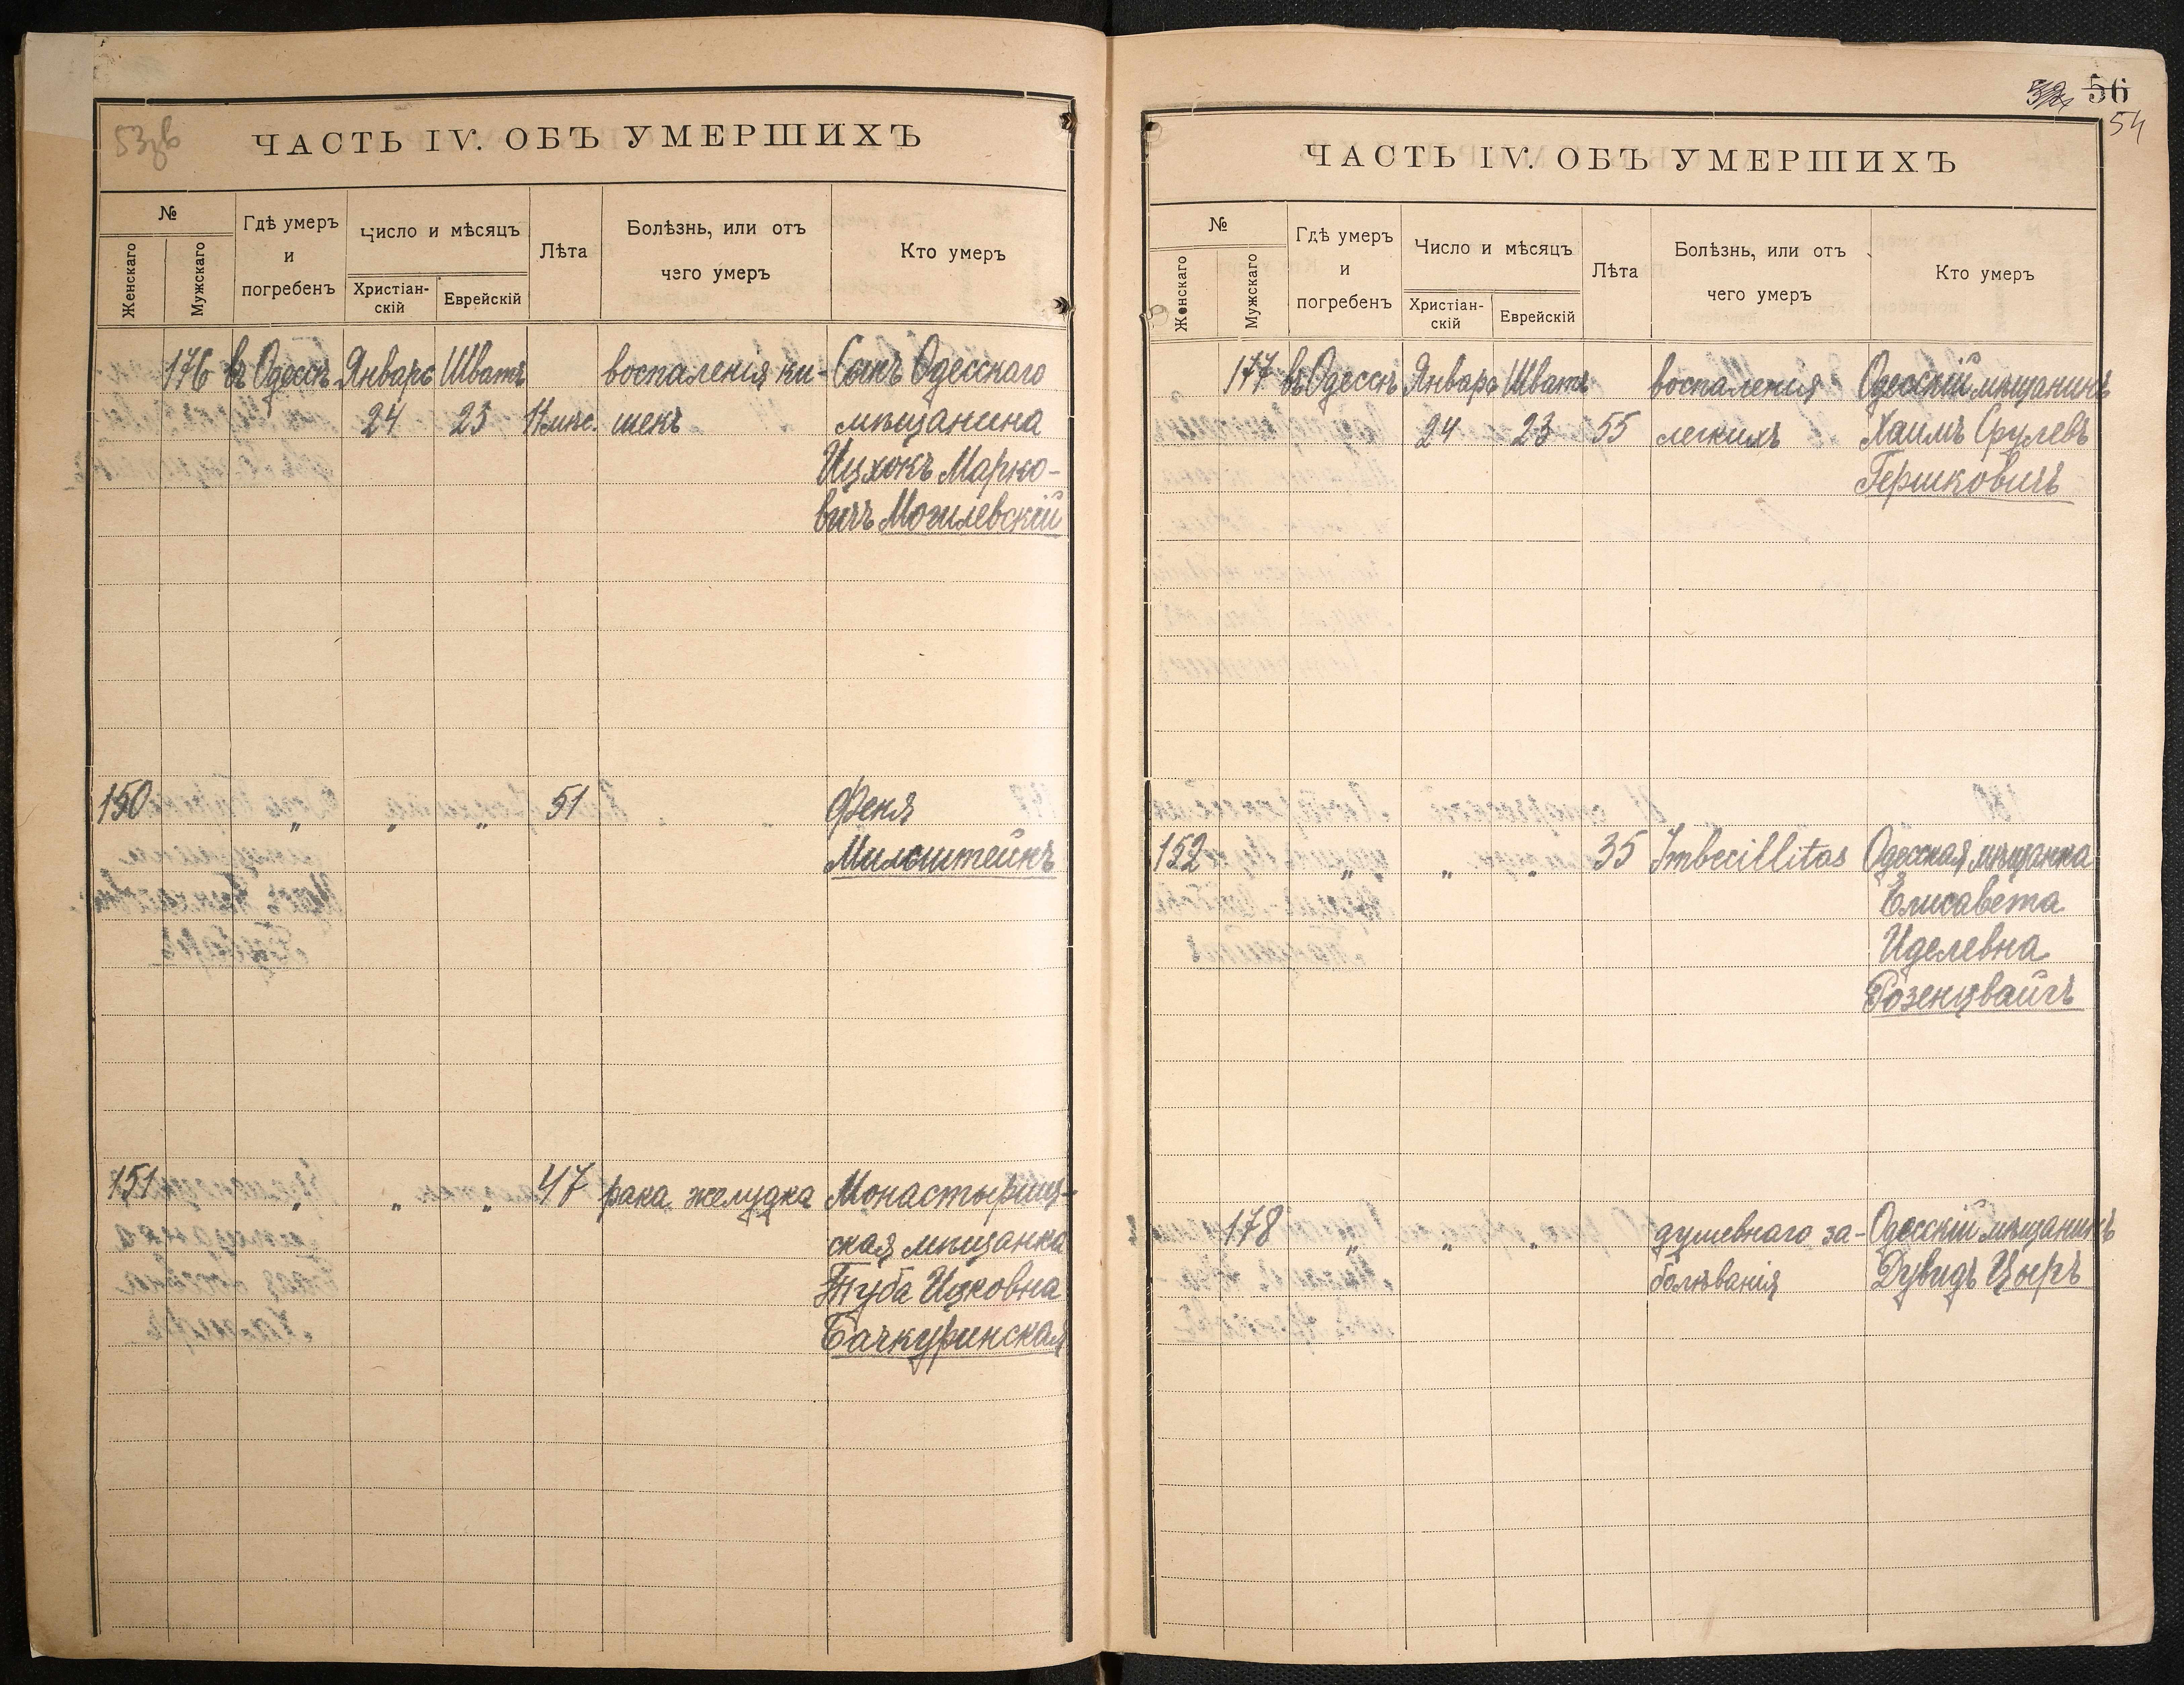 53зв
ЧАСТЬ IV. ОБЪ УМЕРШИХЪ
№
Женскаго
Мужскаго
Гдѣ умеръ
и
погребенъ
Число и мѣсяцъ
Христіан-
скій
Еврейскій
Лѣта
Болѣзнь, или отъ
чего умеръ
Кто умеръ
176 въ Одессѣ Январь Шватъ воспаленія ки- Сынъ Одесскаго
24 23 11 мѣс. шекъ мѣщанина
Ицхокъ Марко-
вичъ Могилевскій
150 „ „ „ 51 Феня
Мильштейнъ
151 „ „ „ 47 рака желудка Монастырищ-
ская мѣщанка
Туба Ицковна
Бачкуринская
56
54
ЧАСТЬ IV. ОБЪ УМЕРШИХЪ
№
Женскаго
Мужскаго
Гдѣ умеръ
и
погребенъ
Число и мѣсяцъ
Христіан-
скій
Еврейскій
Лѣта
Болѣзнь, или отъ
чего умеръ
Кто умеръ
177 въ Одессѣ Январь Шватъ воспаленія Одесскій мѣщанинъ
24 23 55 легкихъ Хаимъ Срулевъ
Гершковичъ
152 „ „ „ 35 Imbecillitas Одесская мѣщанка
Елисавета
Иделевна
Розенцвайгъ
178 „ „ „ душевнаго за- Одесскій мѣщанинъ
болѣванія Дувидъ Цыръ